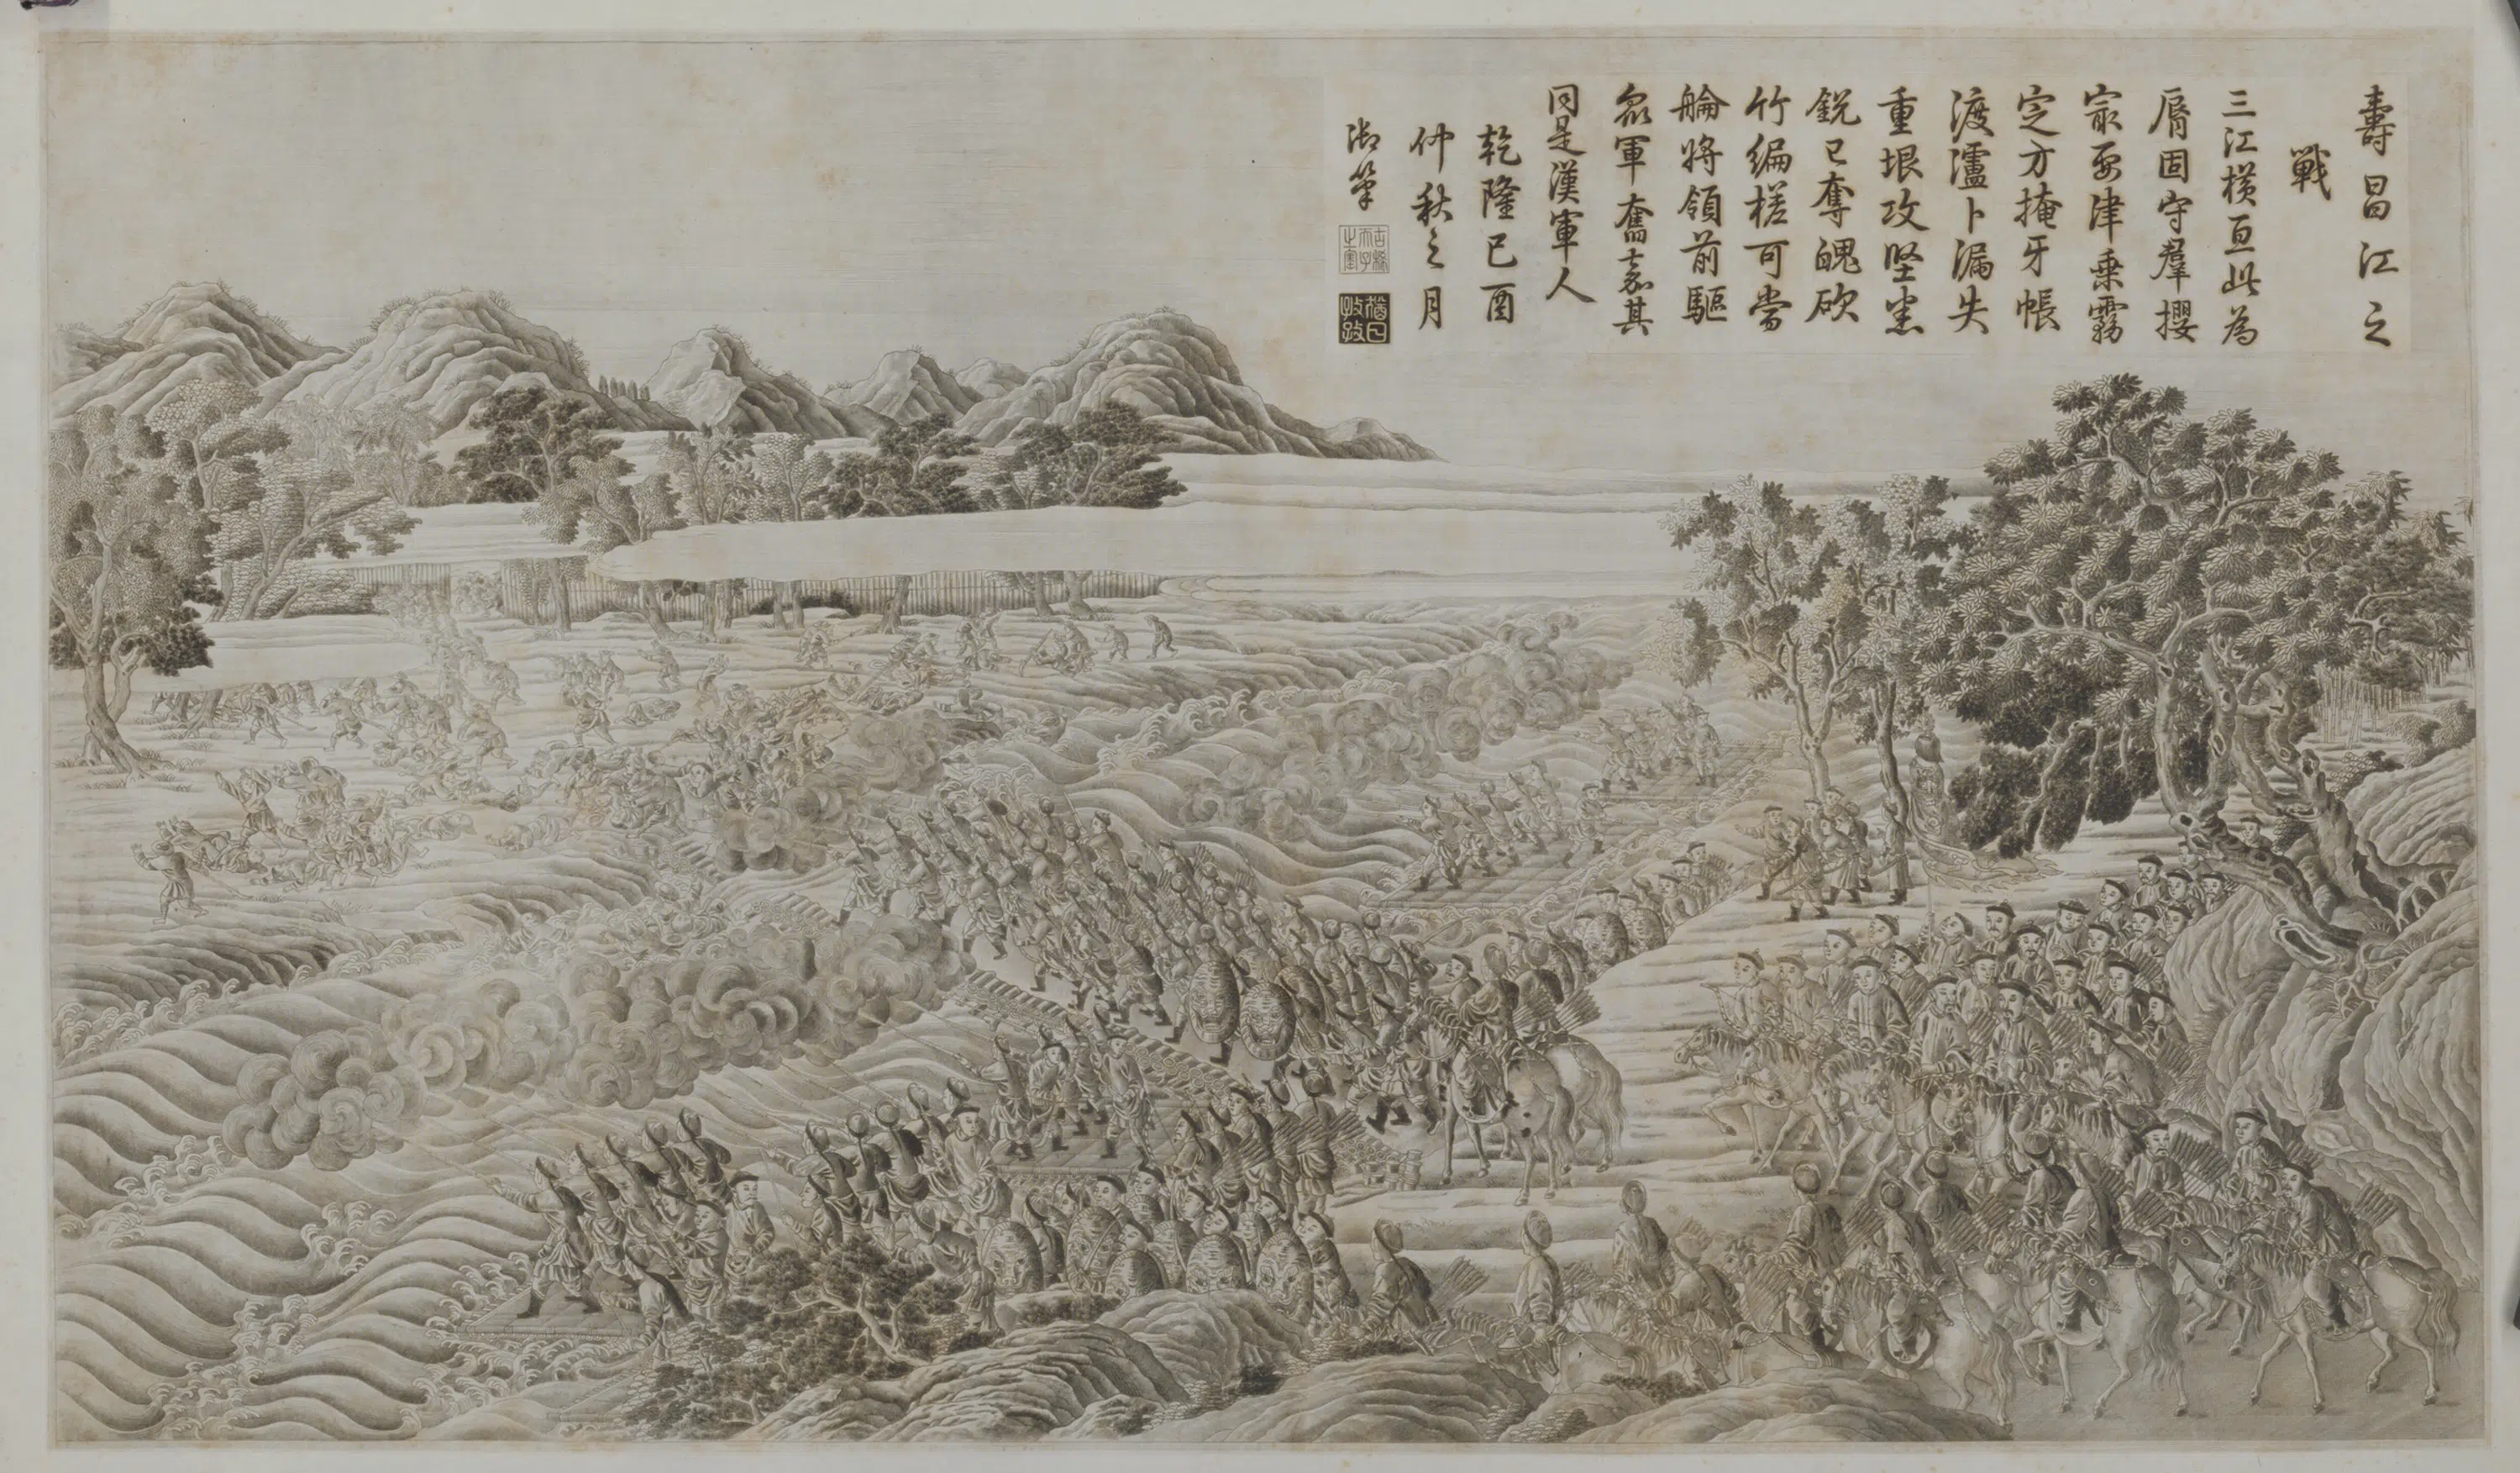 壽昌江之
戰
三江橫亘此為
脣固守羣攖
㝡要津乗霧
定方掩牙帳
渡瀘卜漏失
重垠攻堅悉
銳已奪魄砍
竹編槎可當
䑳將領前驅
眾軍奮嘉其
同是漢軍人
乾隆己酉
仲秋之月
御筆
古稀天子之寶
猶日孜孜